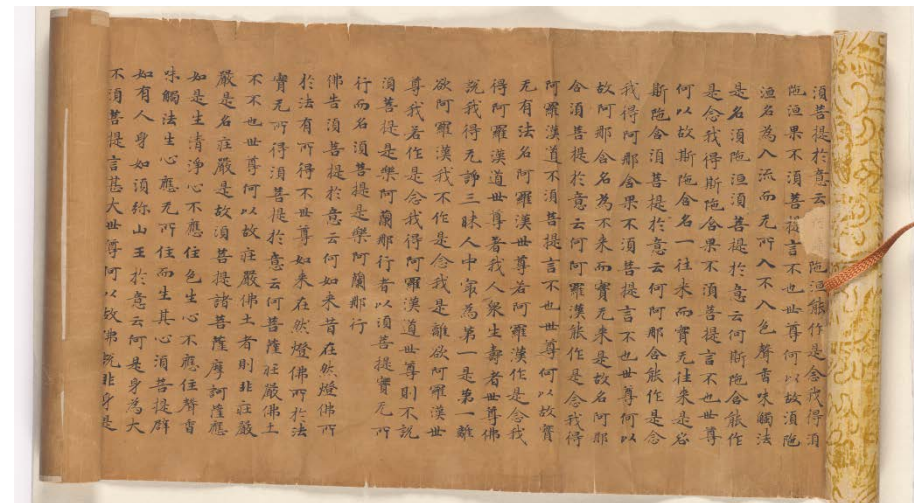 須菩提於意云 陁洹能作是念我得須
陁洹果不須菩提言不也世尊何以故須陁
洹名為入流而无所入不入色聲香味觸法
是名須陁洹須菩提於意云何斯陁含能作
是念我得斯陁含果不須菩提言不也世尊
何以故斯陁含名一往来而實无往来是名
斯陁含須菩提於意云何阿那含能作是念
我得阿那含果不須菩提言不也世尊何以
故阿那含名為不来而實无来是故名阿那
含須菩提於意云何阿羅漢能作是念我得
阿羅漢道不須菩提言不也世尊何以故實
无有法名阿羅漢世尊若阿羅漢作是念我
得阿羅漢道世尊者我人衆生壽者世尊佛
說我得无諍三昧人中㝡為第一是第一離
欲阿羅漢我不作是念我是離欲阿羅漢世
尊我若作是念我得阿羅漢道世尊則不說
須菩提是樂阿蘭那行者以須菩提實无所
行而名須菩提是樂阿蘭那行
佛告須菩提於意云何如来昔在然燈佛所
於法有所得不世尊如来在然燈佛所於法
實无所得須菩提於意云何菩薩莊嚴佛土
不不也世尊何以故莊嚴佛土者則非莊嚴
是名莊嚴是故須菩提諸菩薩摩訶薩應
如是生清淨心不應住色生心不應住聲香
味觸法生心應无所住而生其心須菩提群
如有人身如須弥山王於意云何是身為大
不須菩提言甚大世尊何以故佛說非身是